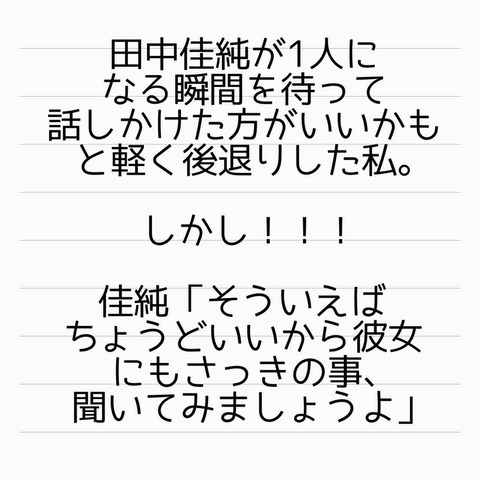 田中佳純が1人に
なる瞬間を待って
話しかけた方がいいかも
と軽く後退りした私。
しかし！！！
佳純「そういえば
ちょうどいいから彼女
にもさっきの事、
聞いてみましょうよ」